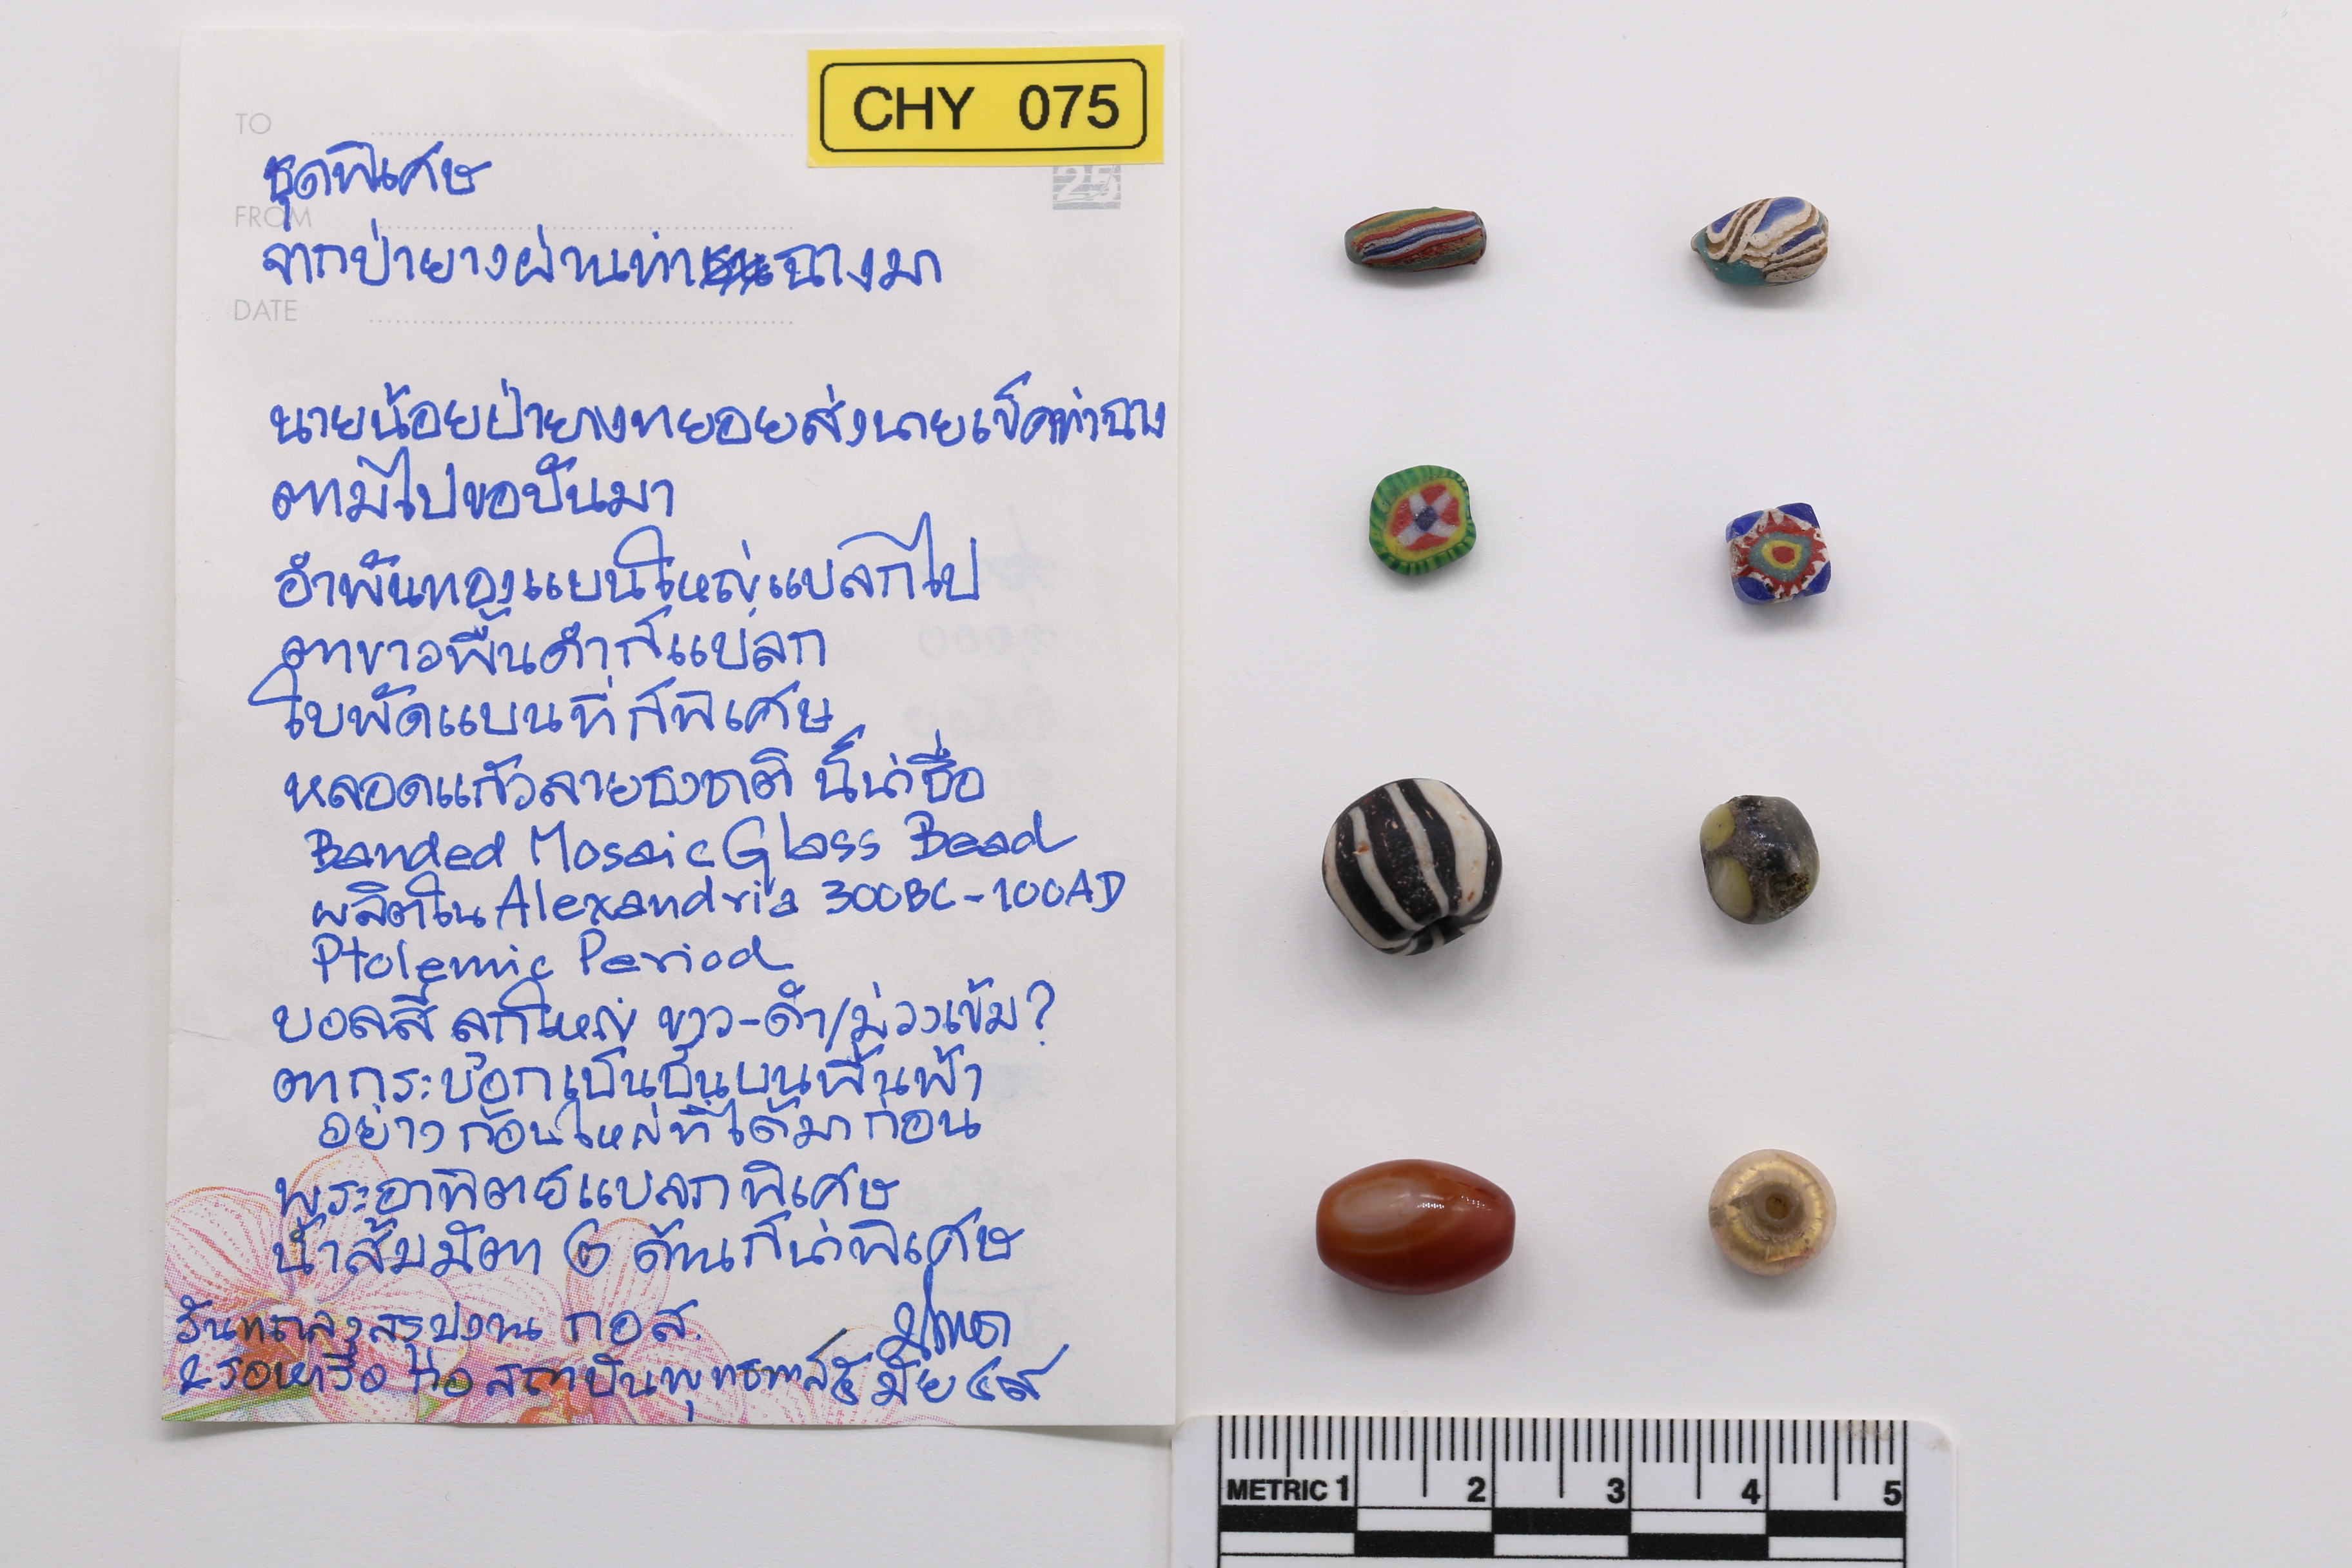 CHY 075
TO
25
ชุดพิเศษ
FROM
จากป่ายางผ่านท่าฉางมา
DATE
นายน้อยป่ายางทยอยส่งนายเจ็คท่าฉาง
ตามไปขอปันมา
อำพันทองแบนใหญ่แปลกไป
ตาขาวพื้นดำก็แปลก
ใบพัดแบนที่ก็พิเศษ
หลอดแก้วลายธงชาติ นี้น่าชื่อ
Banded Mosaic Glass Bead
ผลิตใน Alexandria 300BC-100AD
Ptolemic Period
บอลสี ลูกใหญ่ ขาว-ดำ/ม่วงเข้ม?
ตากระบอกเป็นชั้นบนพื้นฟ้า
อย่างก้อนใหญ่ที่ได้มาก่อน
พระอาทิตย์แปลกพิเศษ
น้ำส้มมีตา ๖ ด้านก็น่าพิเศษ
วันแถลงสรุปงาน กอส.
&รอหารือ สถาบันพุทธทาส ๕ มิย ๔๙
METRIC 1 2 3 4 5